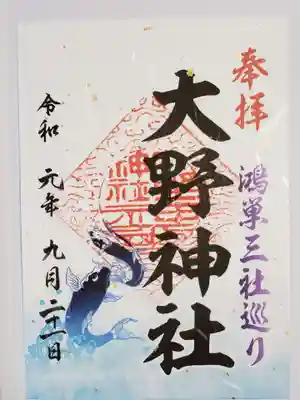 奉拝
鴻巣三社巡り
大野神社
令和元年九月二十一日